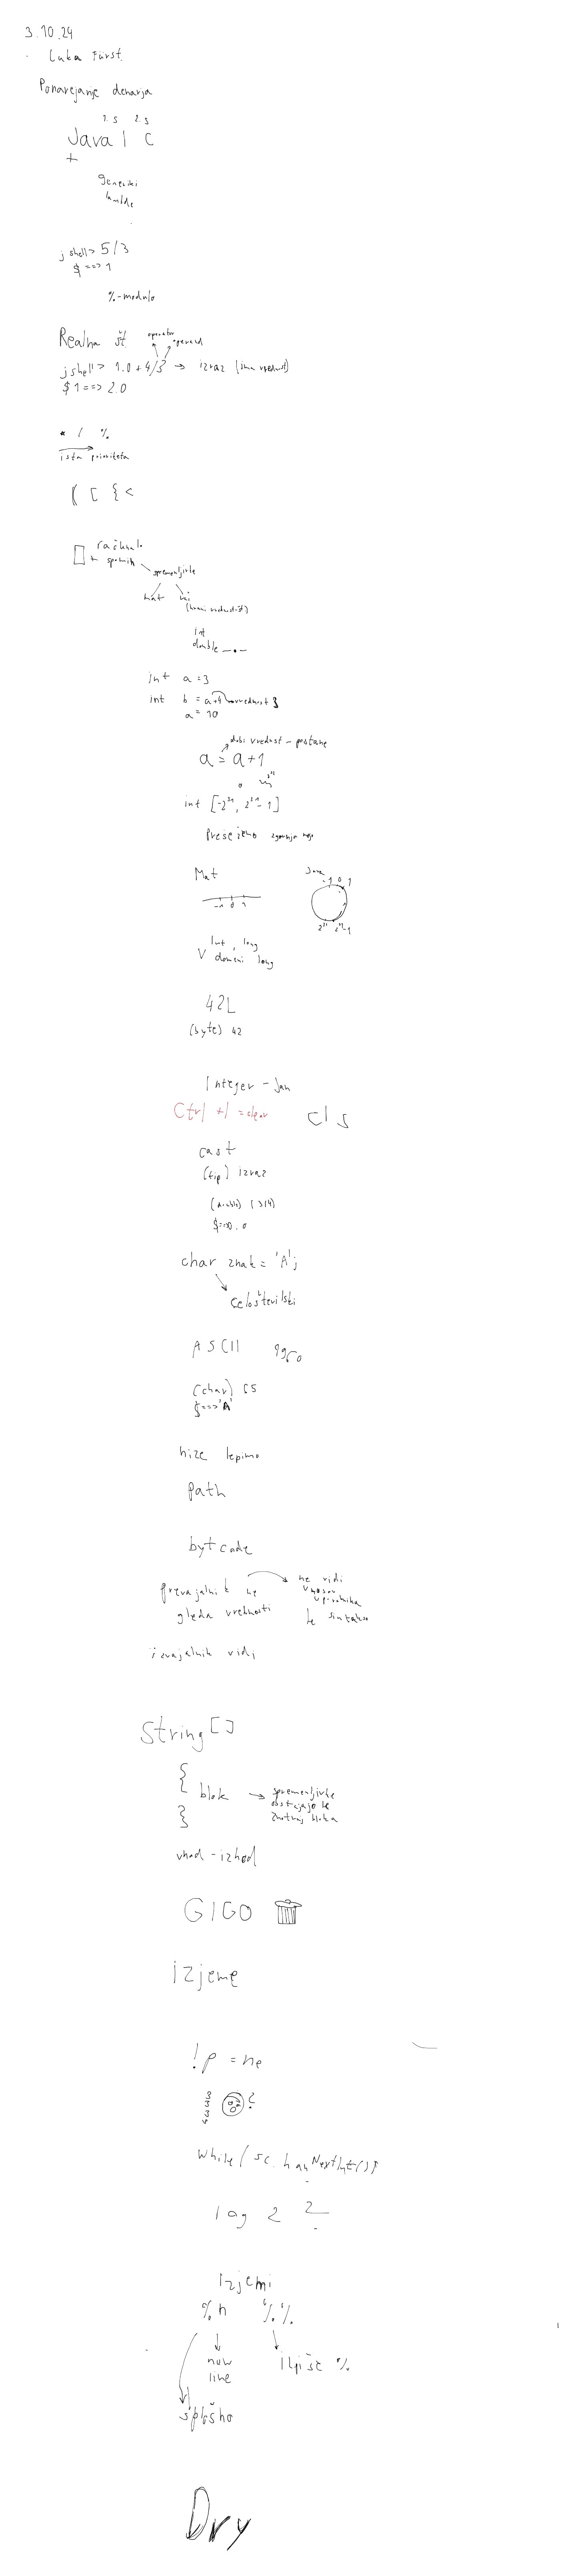 3.10.24
Luka Fürst
Ponavejanje denarja
1. s 2. s
Java | C
+
generiki
lambde
jshell> 5/3
$ ==> 1
%-modulo
Realna št
operator
operand
jshell> 1.0 + 4/3 → izraz (ima vrednost)
$1 ==> 2.0
* / %
ista prioriteta
( [ { <
računalo
+ spomin
spremenljivke
mat
int
double _._
int a = 3
int b = a+4 vrednost 3
a = 10
dobi vrednost - postane
a = a + 1
int [-2³¹, 2³¹-1]
Presežemo zgornjo mejo
Mat
Java
-1 0 1
-1 0 1
2³¹ 2³¹-1
int, long
V domeni long
42L
(byte) 42
Integer - Jan
Ctrl + l = clear cls
cast
(tip) izraz
(double) (3/4)
$==>0.0
char znak = 'A';
celoštevilski
ASCII 1960
(char) 65
$==>'A'
nize lepimo
path
bytcode
prevajalnik ne
gleda vrednosti
ne vidi
vnosov
uporabnika
le sintakso
izvajalnik vidi
String[]
{
blok → spremenljivke
obstajajo le
znotraj bloka
}
vhod - izhod
GIGO
izjeme
!p = ne
?
while (sc.hasNextInt())
log 2 2
Izjemi
%n %%
new
line
izpiše %
splošno
Dry